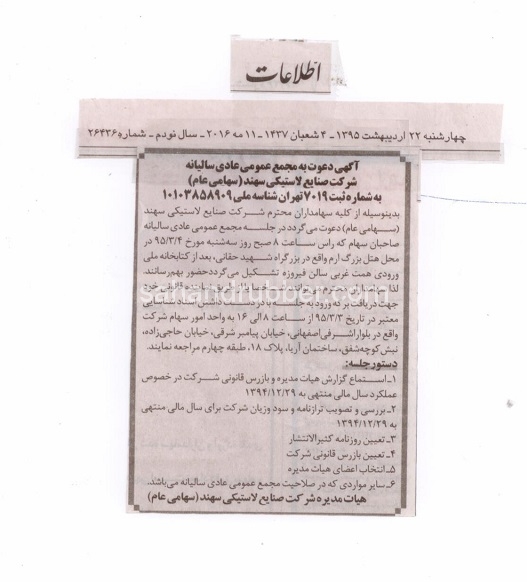 اطلاعات
چهارشنبه ۲۲ اردیبهشت ۱۳۹۵ - ۴ شعبان ۱۴۳۷ - ۱۱ مه ۲۰۱۶ - سال نودم - شماره ۲۶۴۳۶
آگهی دعوت به مجمع عمومی عادی سالیانه
شرکت صنایع لاستیکی سهند (سهامی عام)
به شماره ثبت ۷۰۱۹ تهران شناسه ملی ۱۰۱۰۳۸۵۸۹۰۹
بدینوسیله از کلیه سهامداران محترم شرکت صنایع لاستیکی سهند
(سهامی عام) دعوت می گردد در جلسه مجمع عمومی عادی سالیانه
صاحبان سهام که راس ساعت ۸ صبح روز سه شنبه مورخ ۹۵/۳/۴ در
محل هتل بزرگ ارم واقع در بزرگراه شهید حقانی، بعد از کتابخانه ملی
ورودی همت غربی سالن فیروزه تشکیل می گردد حضور بهم رسانند.
لذا سهامداران محترم می توانند
جهت دریافت برگه ورود به جلسه با در دست داشتن اسناد شناسایی
معتبر در تاریخ ۹۵/۳/۳ از ساعت ۸ الی ۱۶ به واحد امور سهام شرکت
واقع در بلوار اشرفی اصفهانی، خیابان پیامبر شرقی، خیابان حاجی زاده،
نبش کوچه شفق، ساختمان آریا، پلاک ۱۸، طبقه چهارم مراجعه نمایند.
دستور جلسه:
۱- استماع گزارش هیات مدیره و بازرس قانونی شرکت در خصوص
عملکرد سال مالی منتهی به ۱۳۹۴/۱۲/۲۹
۲- بررسی و تصویب ترازنامه و سود و زیان شرکت برای سال مالی منتهی
به ۱۳۹۴/۱۲/۲۹
۳- تعیین روزنامه کثیرالانتشار
۴- تعیین بازرس قانونی شرکت
۵- انتخاب اعضای هیات مدیره
۶- سایر مواردی که در صلاحیت مجمع عمومی عادی سالیانه می باشد.
هیات مدیره شرکت صنایع لاستیکی سهند (سهامی عام)
sahandrubber.com